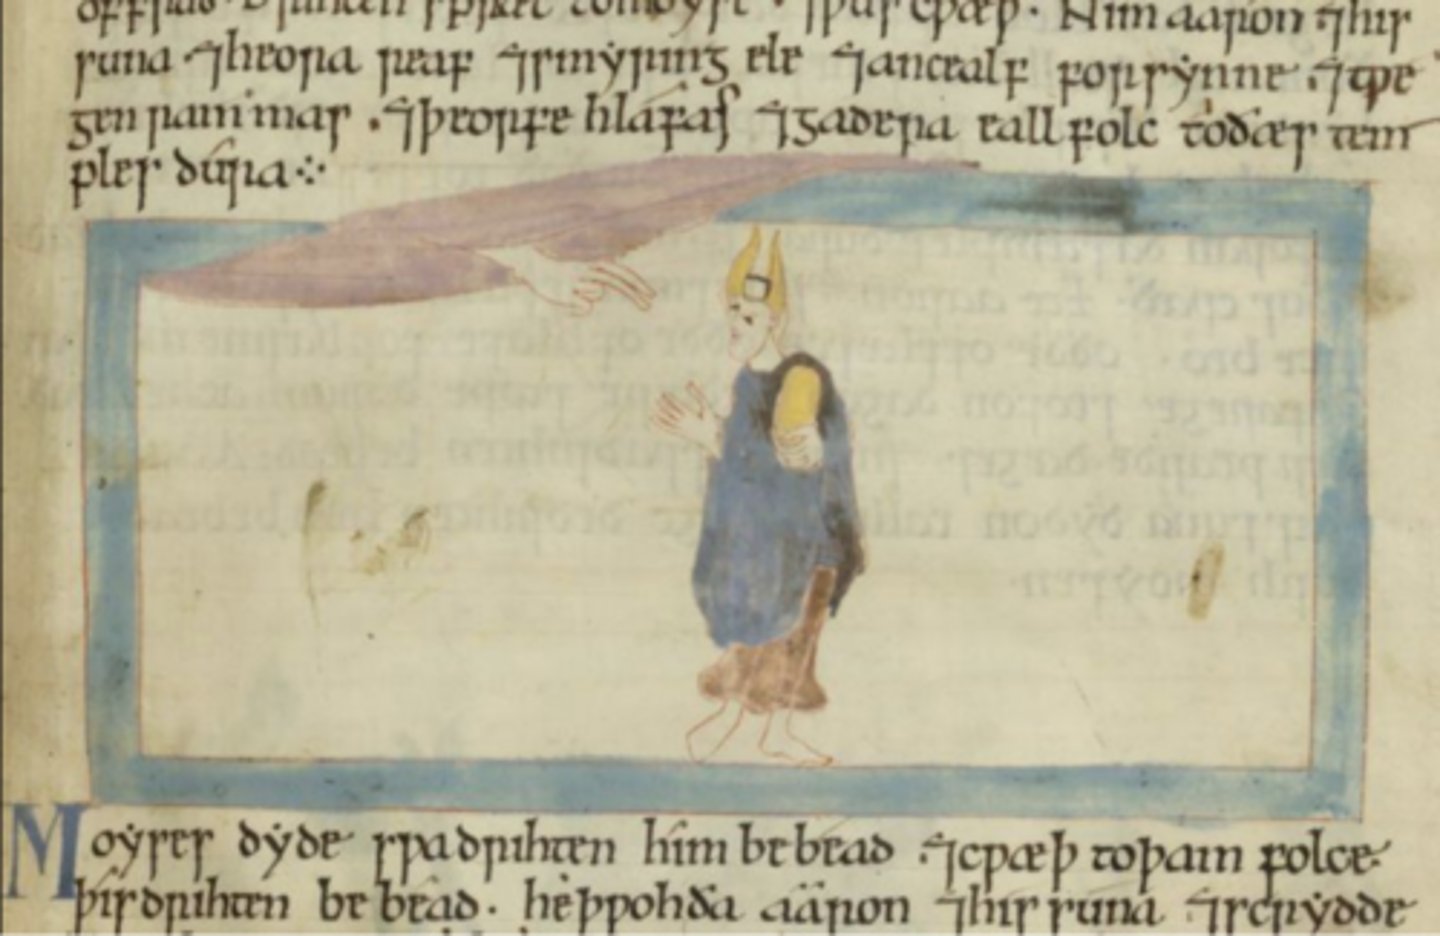 drihten spræc to moyse · þus cƿæþ · Nim aaron ⁊ his
suna ⁊ heora reaf ⁊ smẏring ele ⁊ an cealf for sẏnne · ⁊ tƿe
gen rammas · ⁊ þeorfe hláfas ⁊ gadera eall folc to ðæs tem
ples dúra
Moẏses dẏde sƿa drihten him bebéad · ⁊ cƿæþ to þam folce
þis drihten bebéad · he þƿoh ða aaron ⁊ his suna ⁊ scrẏdde